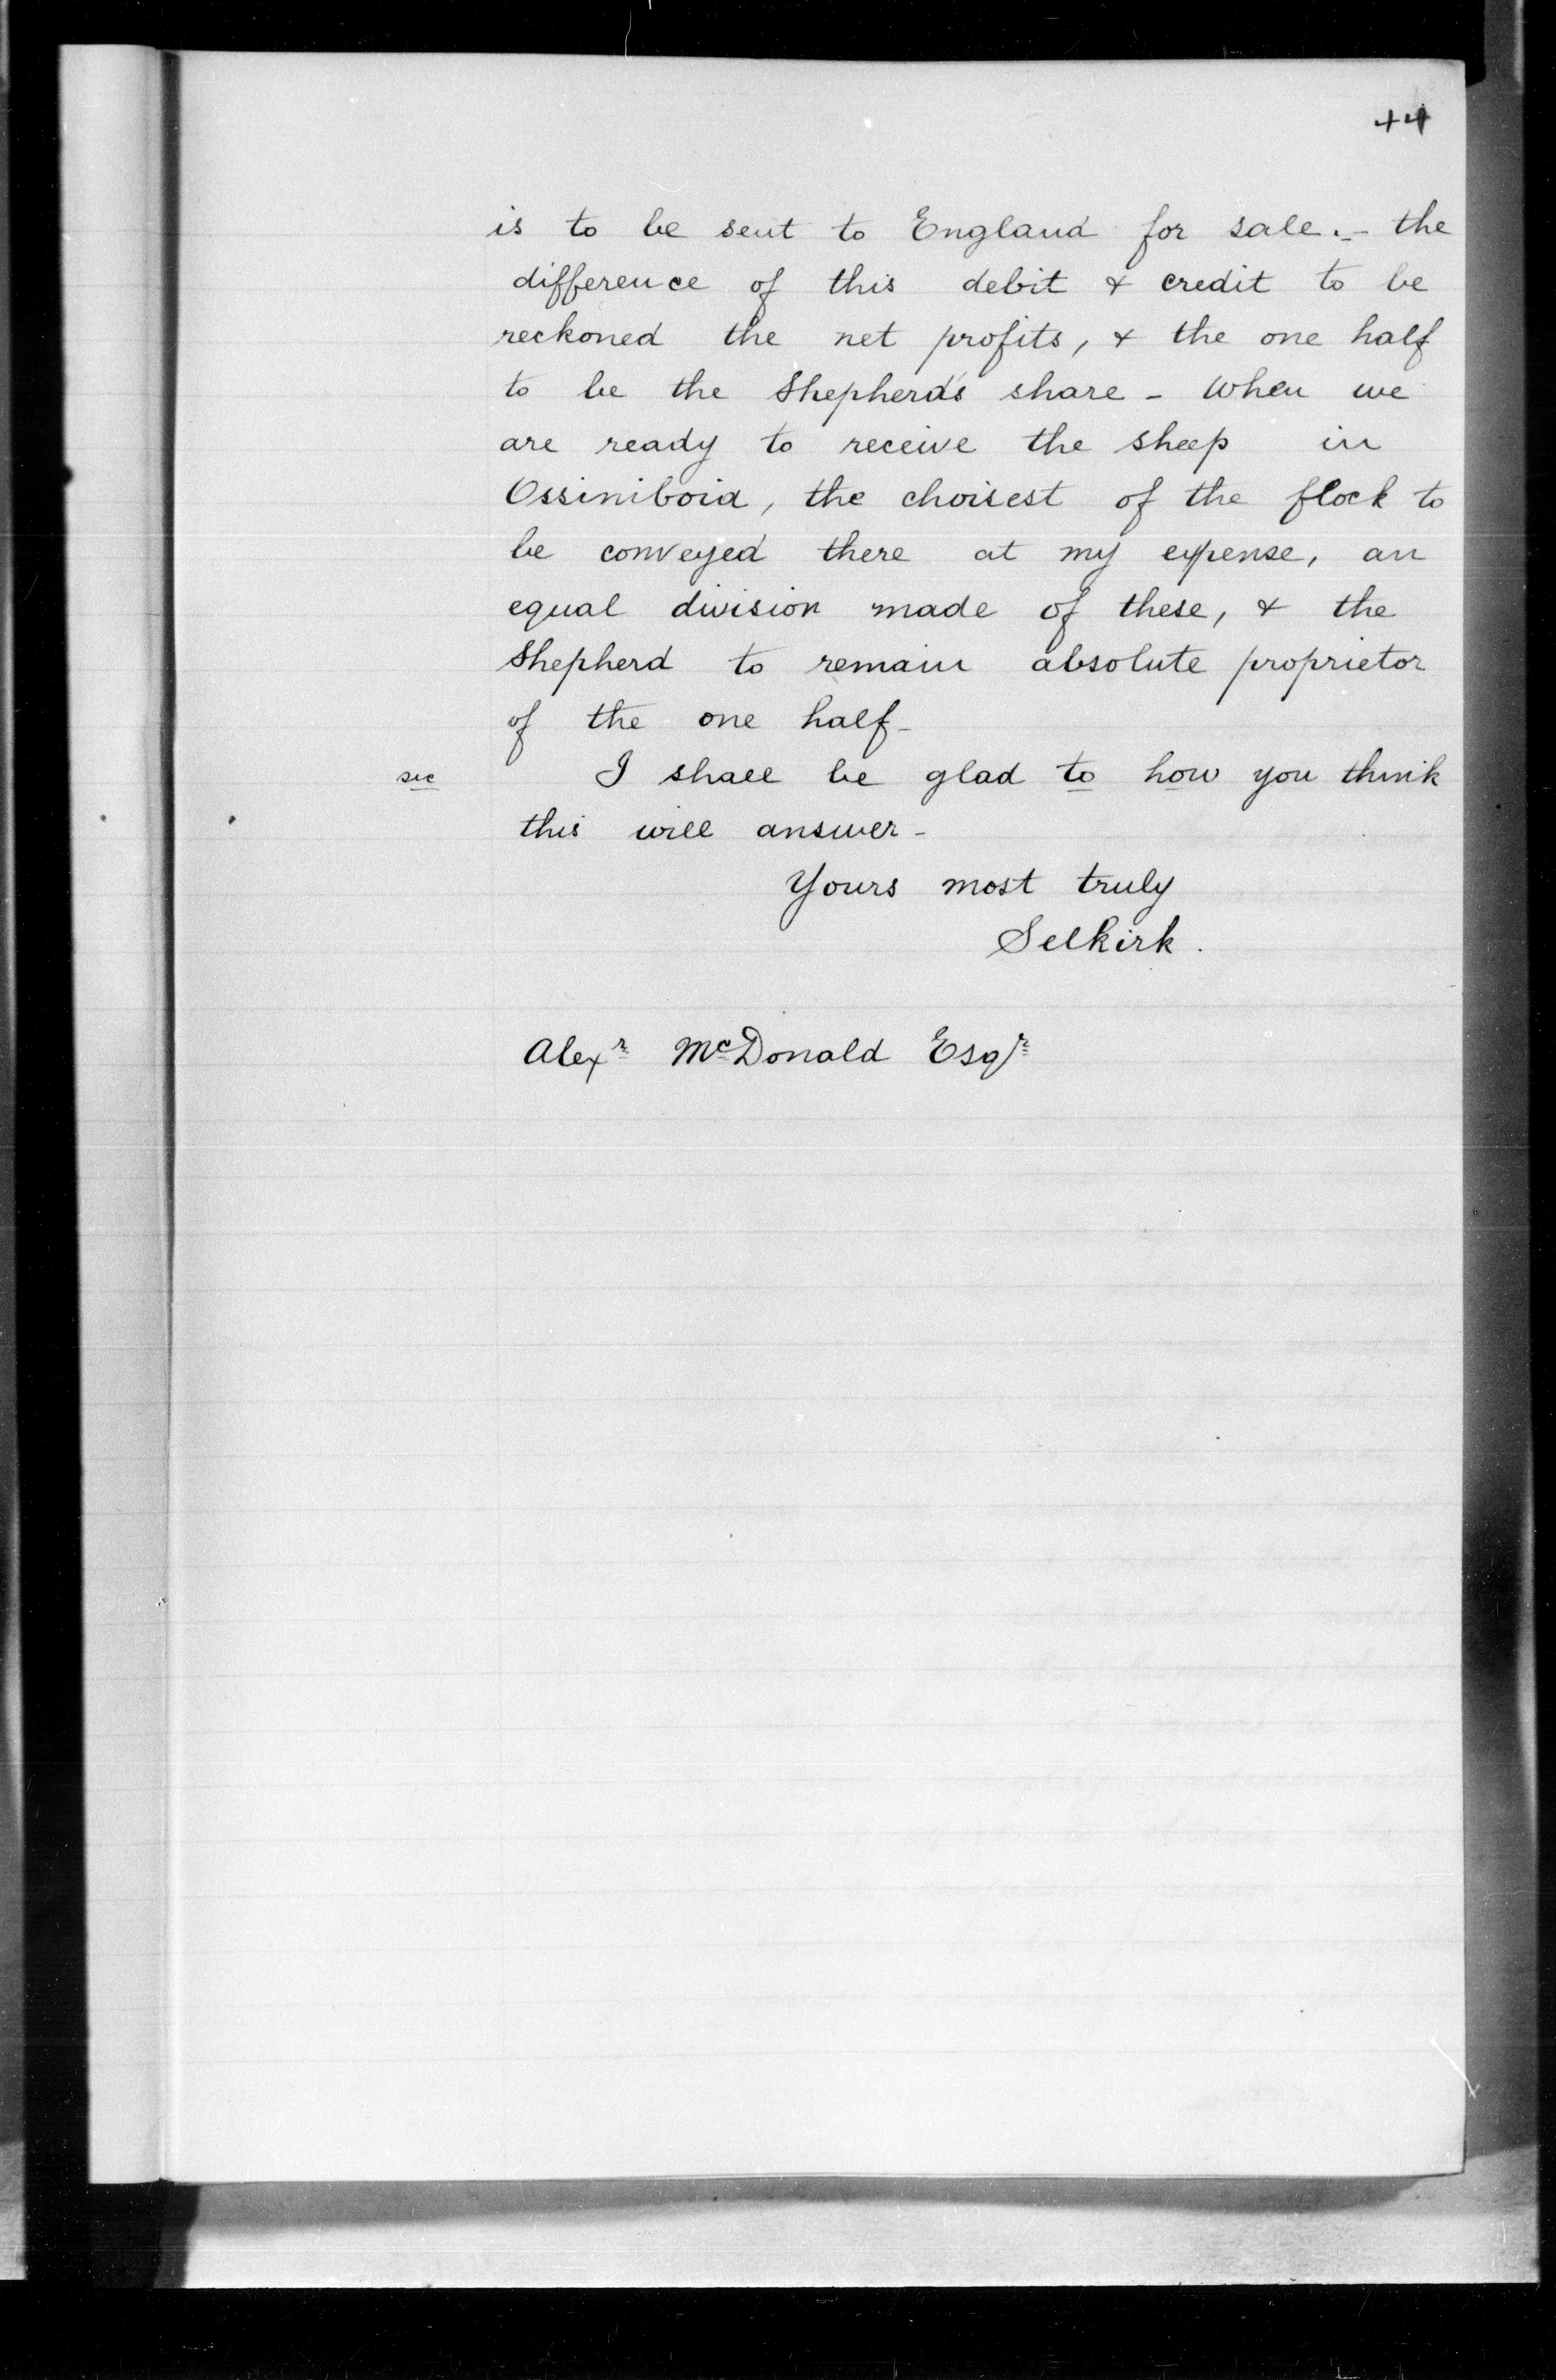 44
is to be sent to England for sale. - the
difference of this debit & credit to be
reckoned the net profits, & the one half
to be the Shepherd's share - When we
are ready to receive the sheep in
Ossiniboia, the choisest of the flock to
be conveyed there at my expense, an
equal division made of these, & the
Shepherd to remain absolute proprietor
of the one half -
sic I shall be glad to how you think
this will answer -
Yours most truly
Selkirk.
Alexr McDonald Esqr